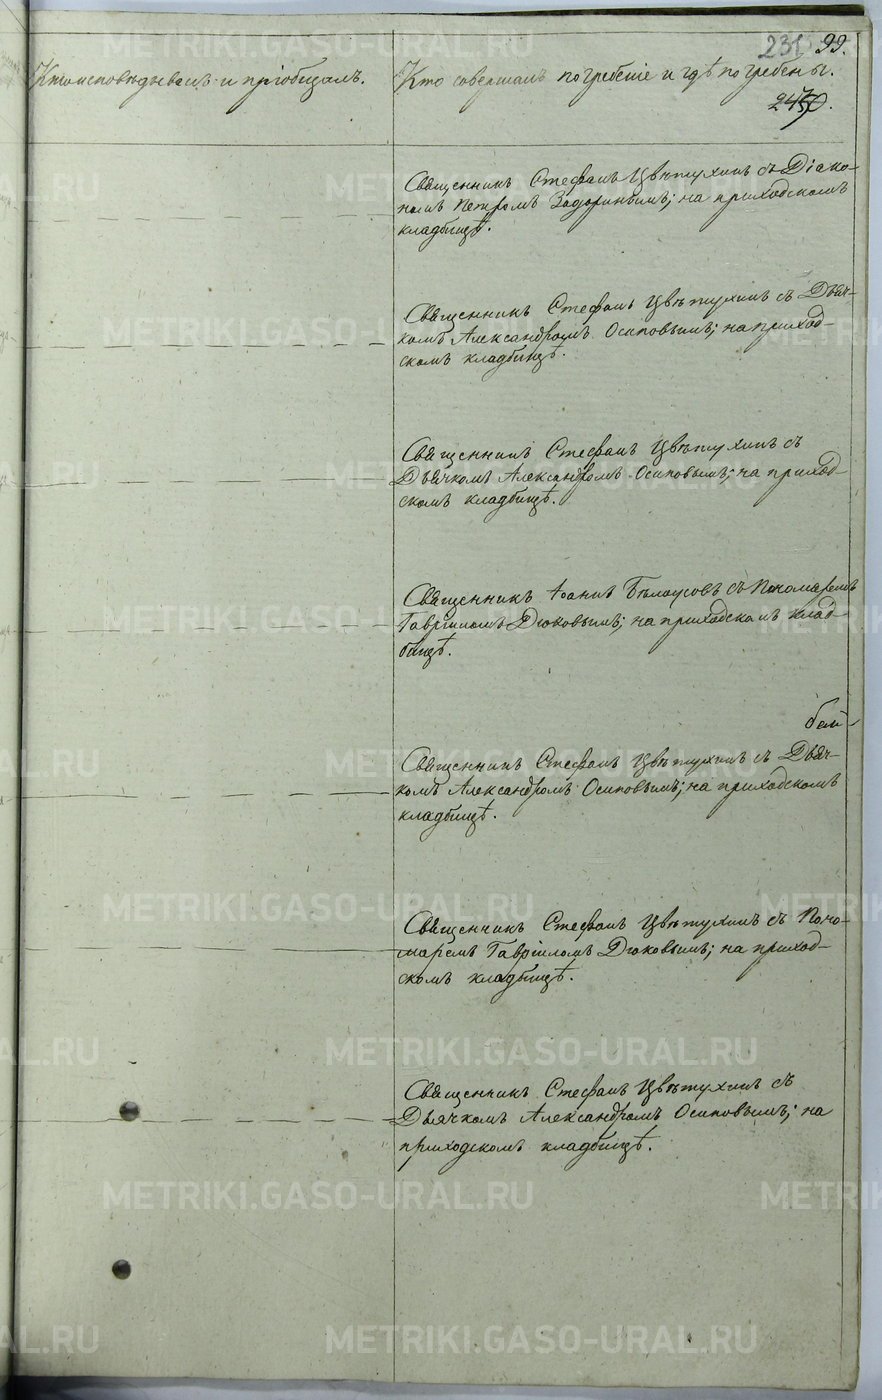 231 99.
Кто исповѣдывалъ и пріобщалъ.
Кто совершалъ погребеніе и гдѣ погребены.
Священникъ Стефанъ Цвѣтухинъ съ Діако-
номъ Петромъ Задоринымъ; на приходскомъ
кладбищѣ.
Священникъ Стефанъ Цвѣтухинъ съ Дьяч-
комъ Александромъ Осиповымъ; на приход-
скомъ кладбищѣ.
Священникъ Стефанъ Цвѣтухинъ съ
Дьячкомъ Александромъ Осиповымъ; на приход-
скомъ кладбищѣ.
Священникъ Іоаннъ Бѣлоусовъ съ Пономаремъ
Гавріиломъ Дюковымъ; на приходскомъ клад-
бищѣ.
Священникъ Стефанъ Цвѣтухинъ съ Дьяч-
комъ Александромъ Осиповымъ; на приходскомъ
кладбищѣ.
Священникъ Стефанъ Цвѣтухинъ съ Поно-
маремъ Гавріиломъ Дюковымъ; на приход-
скомъ кладбищѣ.
Священникъ Стефанъ Цвѣтухинъ съ
Дьячкомъ Александромъ Осиповымъ; на
приходскомъ кладбищѣ.
METRIKI.GASO-URAL.RU